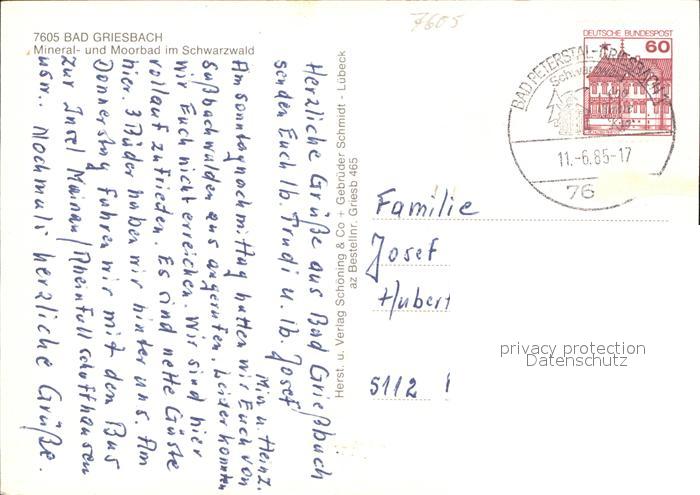 7605
7605 BAD GRIESBACH
Mineral- und Moorbad im Schwarzwald
DEUTSCHE BUNDESPOST
60
BAD PETERSTAL-GRIESBACH
Schwarzwald
11.-6.85-17
76
Herst. u. Verlag Schöning & Co + Gebrüder Schmidt - Lübeck
az Bestellnr. Griesb 465
Herzliche Grüße aus Bad Grießbach
senden Euch lb. Trudi u. lb. Josef
Min u. Heinz.
Am Sonntagnachmittag hatten wir Euch von
Saßbachwalden aus angerufen. Leider konnten
wir Euch nicht erreichen. Wir sind hier
vollauf zufrieden. Es sind nette Gäste
hier. 3 Bäder haben wir hinter uns. Am
Donnerstag fahren wir mit dem Bus
zur Insel Mainau/Rheinfall Schaffhausen
usw.. Nochmals herzliche Grüße.
Familie
Josef
Hubert
5112
privacy protection
Datenschutz